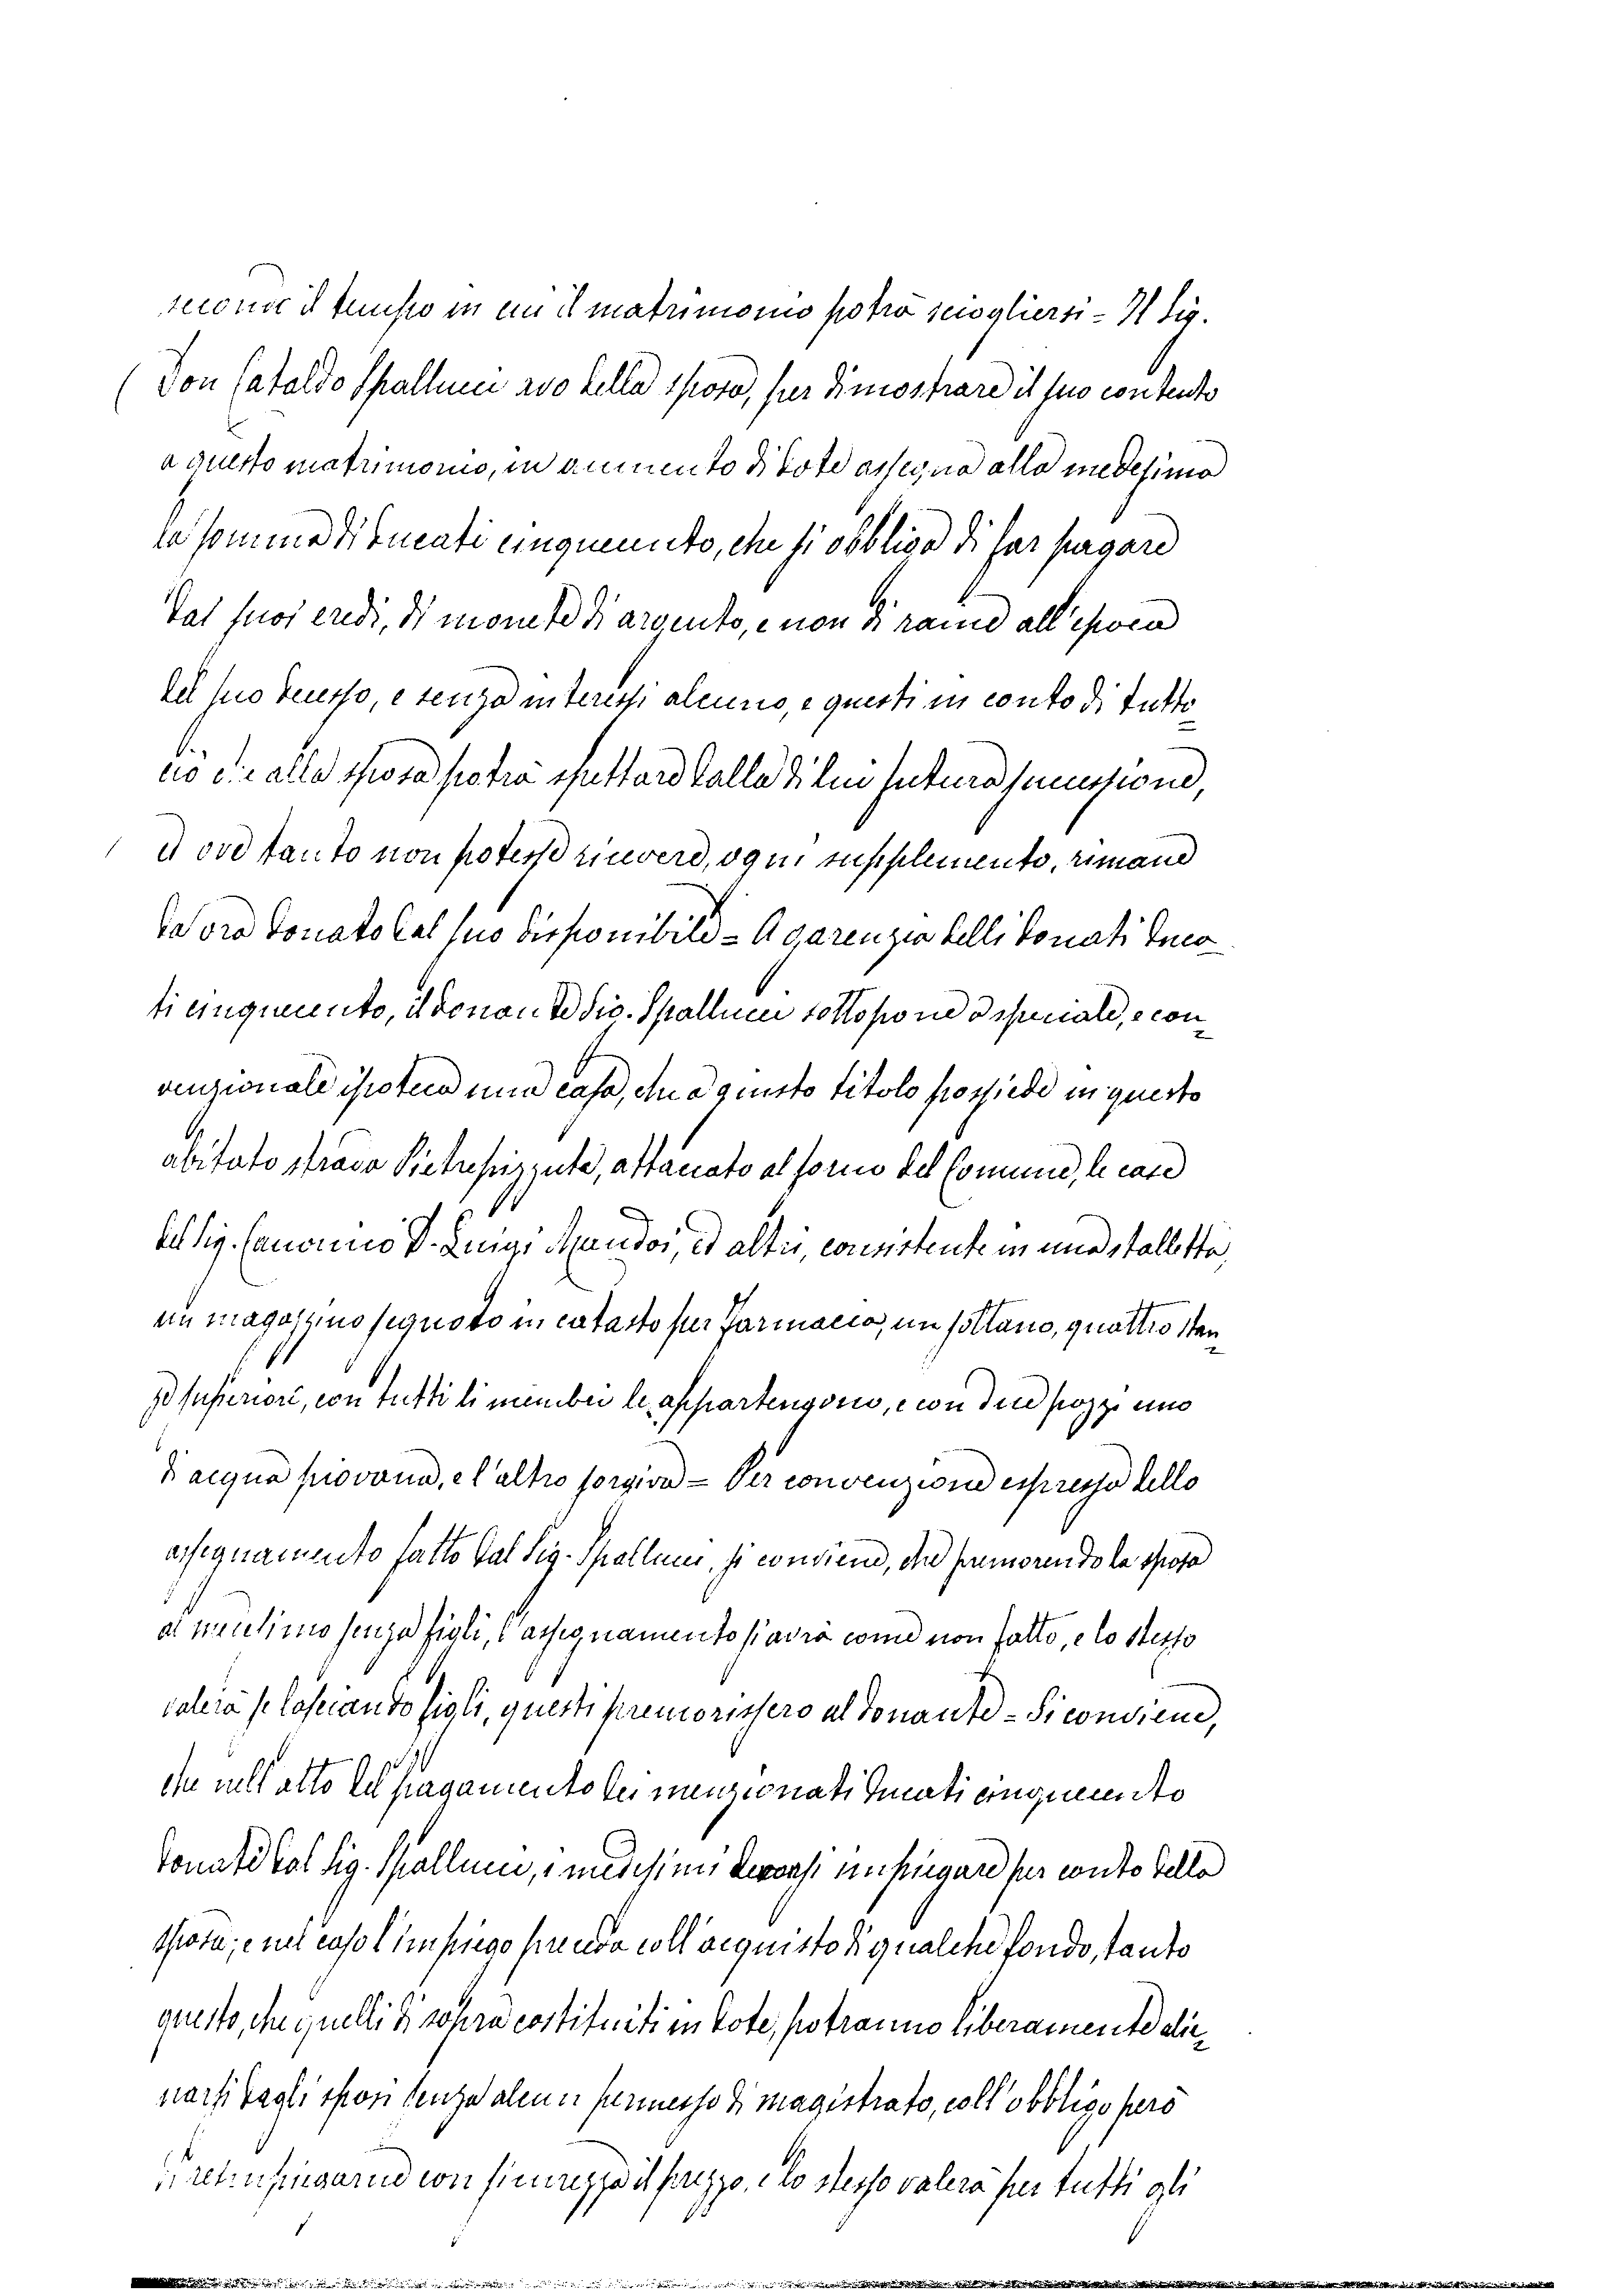 secondo il tempo in cui il matrimonio potrà sciogliersi = Il Sig.
Don Cataldo Spallucci avo della sposa, per dimostrare il suo contento
a questo matrimonio, in aumento di dote assegna alla medesima
la somma di ducati cinquecento, che si obbliga di far pagare
dai suoi eredi, di monete di argento, e non di rame all'epoca
del suo decesso, e senza interessi alcuno, e questi in conto di tutto
ciò che alla sposa potrà spettare dalla di lui futura successione,
ed ove tanto non potesse ricevere, ogni supplemento, rimane
da ora donato dal suo disponibile = A garenzia delli donati duca
ti cinquecento, il donante Sig. Spallucci sottopone a speciale, e con
venzionale ipoteca una casa, che a giusto titolo possiede in questo
abitato strada Pietrepizzute, attaccato al forno del Comune, le case
del Sig. Canonico D. Luigi Mandoi, ed altri, consistente in una stalletta,
un magazzino segnato in catasto per Farmacia, un sottano, quattro stan
ze superiori, con tutti li membri le appartengono, e con due pozzi uno
di acqua piovana, e l'altro sorgiva = Per convenzione espressa dello
assegnamento fatto dal Sig. Spallucci, si conviene, che premorendo la sposa
al medesimo senza figli, l'assegnamento si avrà come non fatto, e lo stesso
valerà se lasciando figli, questi premorissero al donante = Si conviene,
che nell'atto del pagamento dei menzionati ducati cinquecento
donati dal Sig. Spallucci, i medesimi devonsi impiegare per conto della
sposa; e nel caso l'impiego prenda coll'acquisto di qualche fondo, tanto
questo, che quelli di sopra costituiti in dote, potranno liberamente alie
narsi dagli sposi senza alcun permesso di magistrato, coll'obbligo però
di reimpiegarne con sicurezza il prezzo, e lo stesso valerà per tutti gli